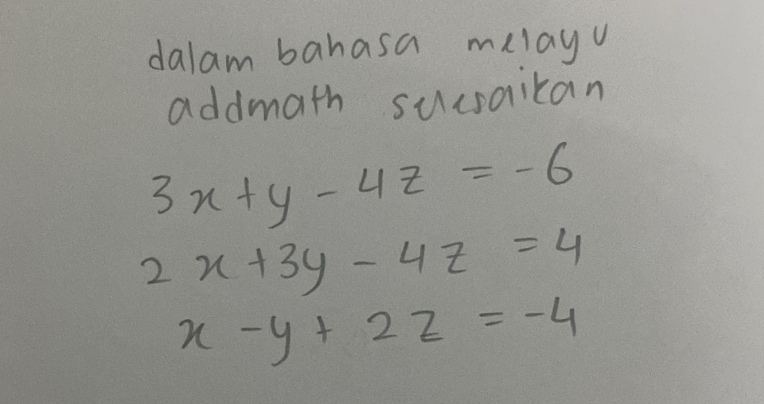 dalam bahasa melayu
addmath selesaikan
3x + y - 4z = -6
2x + 3y - 4z = 4
x - y + 2z = -4